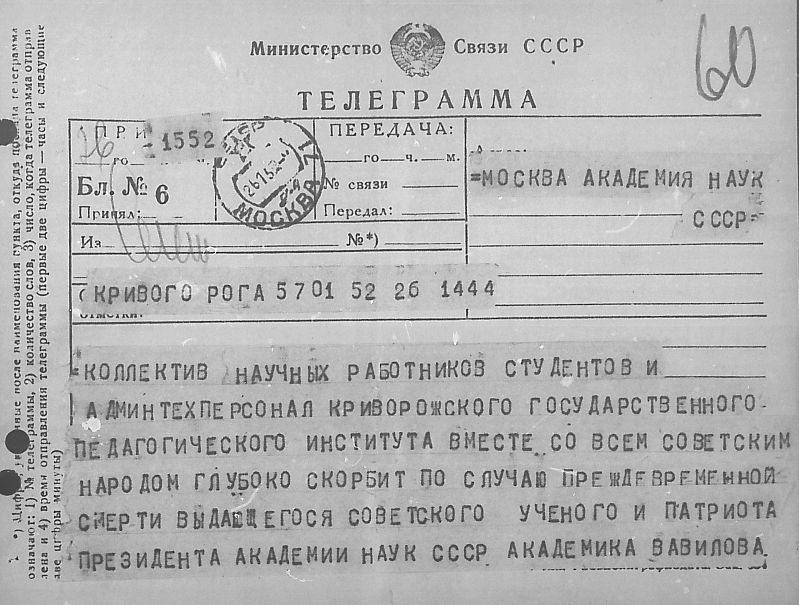 Министерство Связи СССР
60
ТЕЛЕГРАММА
ПРИ
1552
го
Бл. № 6
Принял:
МОСКВА
ПЕРЕДАЧА:
го ч. м.
№ связи
Передал:
Из №*)
=МОСКВА АКАДЕМИЯ НАУК
СССР=
КРИВОГО РОГА 5701 52 26 1444
=КОЛЛЕКТИВ НАУЧНЫХ РАБОТНИКОВ СТУДЕНТОВ И
АДМИНТЕХПЕРСОНАЛ КРИВОРОЖСКОГО ГОСУДАРСТВЕННОГО
ПЕДАГОГИЧЕСКОГО ИНСТИТУТА ВМЕСТЕ СО ВСЕМ СОВЕТСКИМ
НАРОДОМ ГЛУБОКО СКОРБИТ ПО СЛУЧАЮ ПРЕЖДЕВРЕМЕННОЙ
СМЕРТИ ВЫДАЮЩЕГОСЯ СОВЕТСКОГО УЧЕНОГО И ПАТРИОТА
ПРЕЗИДЕНТА АКАДЕМИИ НАУК СССР АКАДЕМИКА ВАВИЛОВА
после наименования пункта, откуда телеграмма
означают: 1) № телеграммы, 2) количество слов, 3) число, когда телеграмма отправ
лена и 4) время отправления телеграммы (первые две цифры — часы и следующие
две цифры минуты)